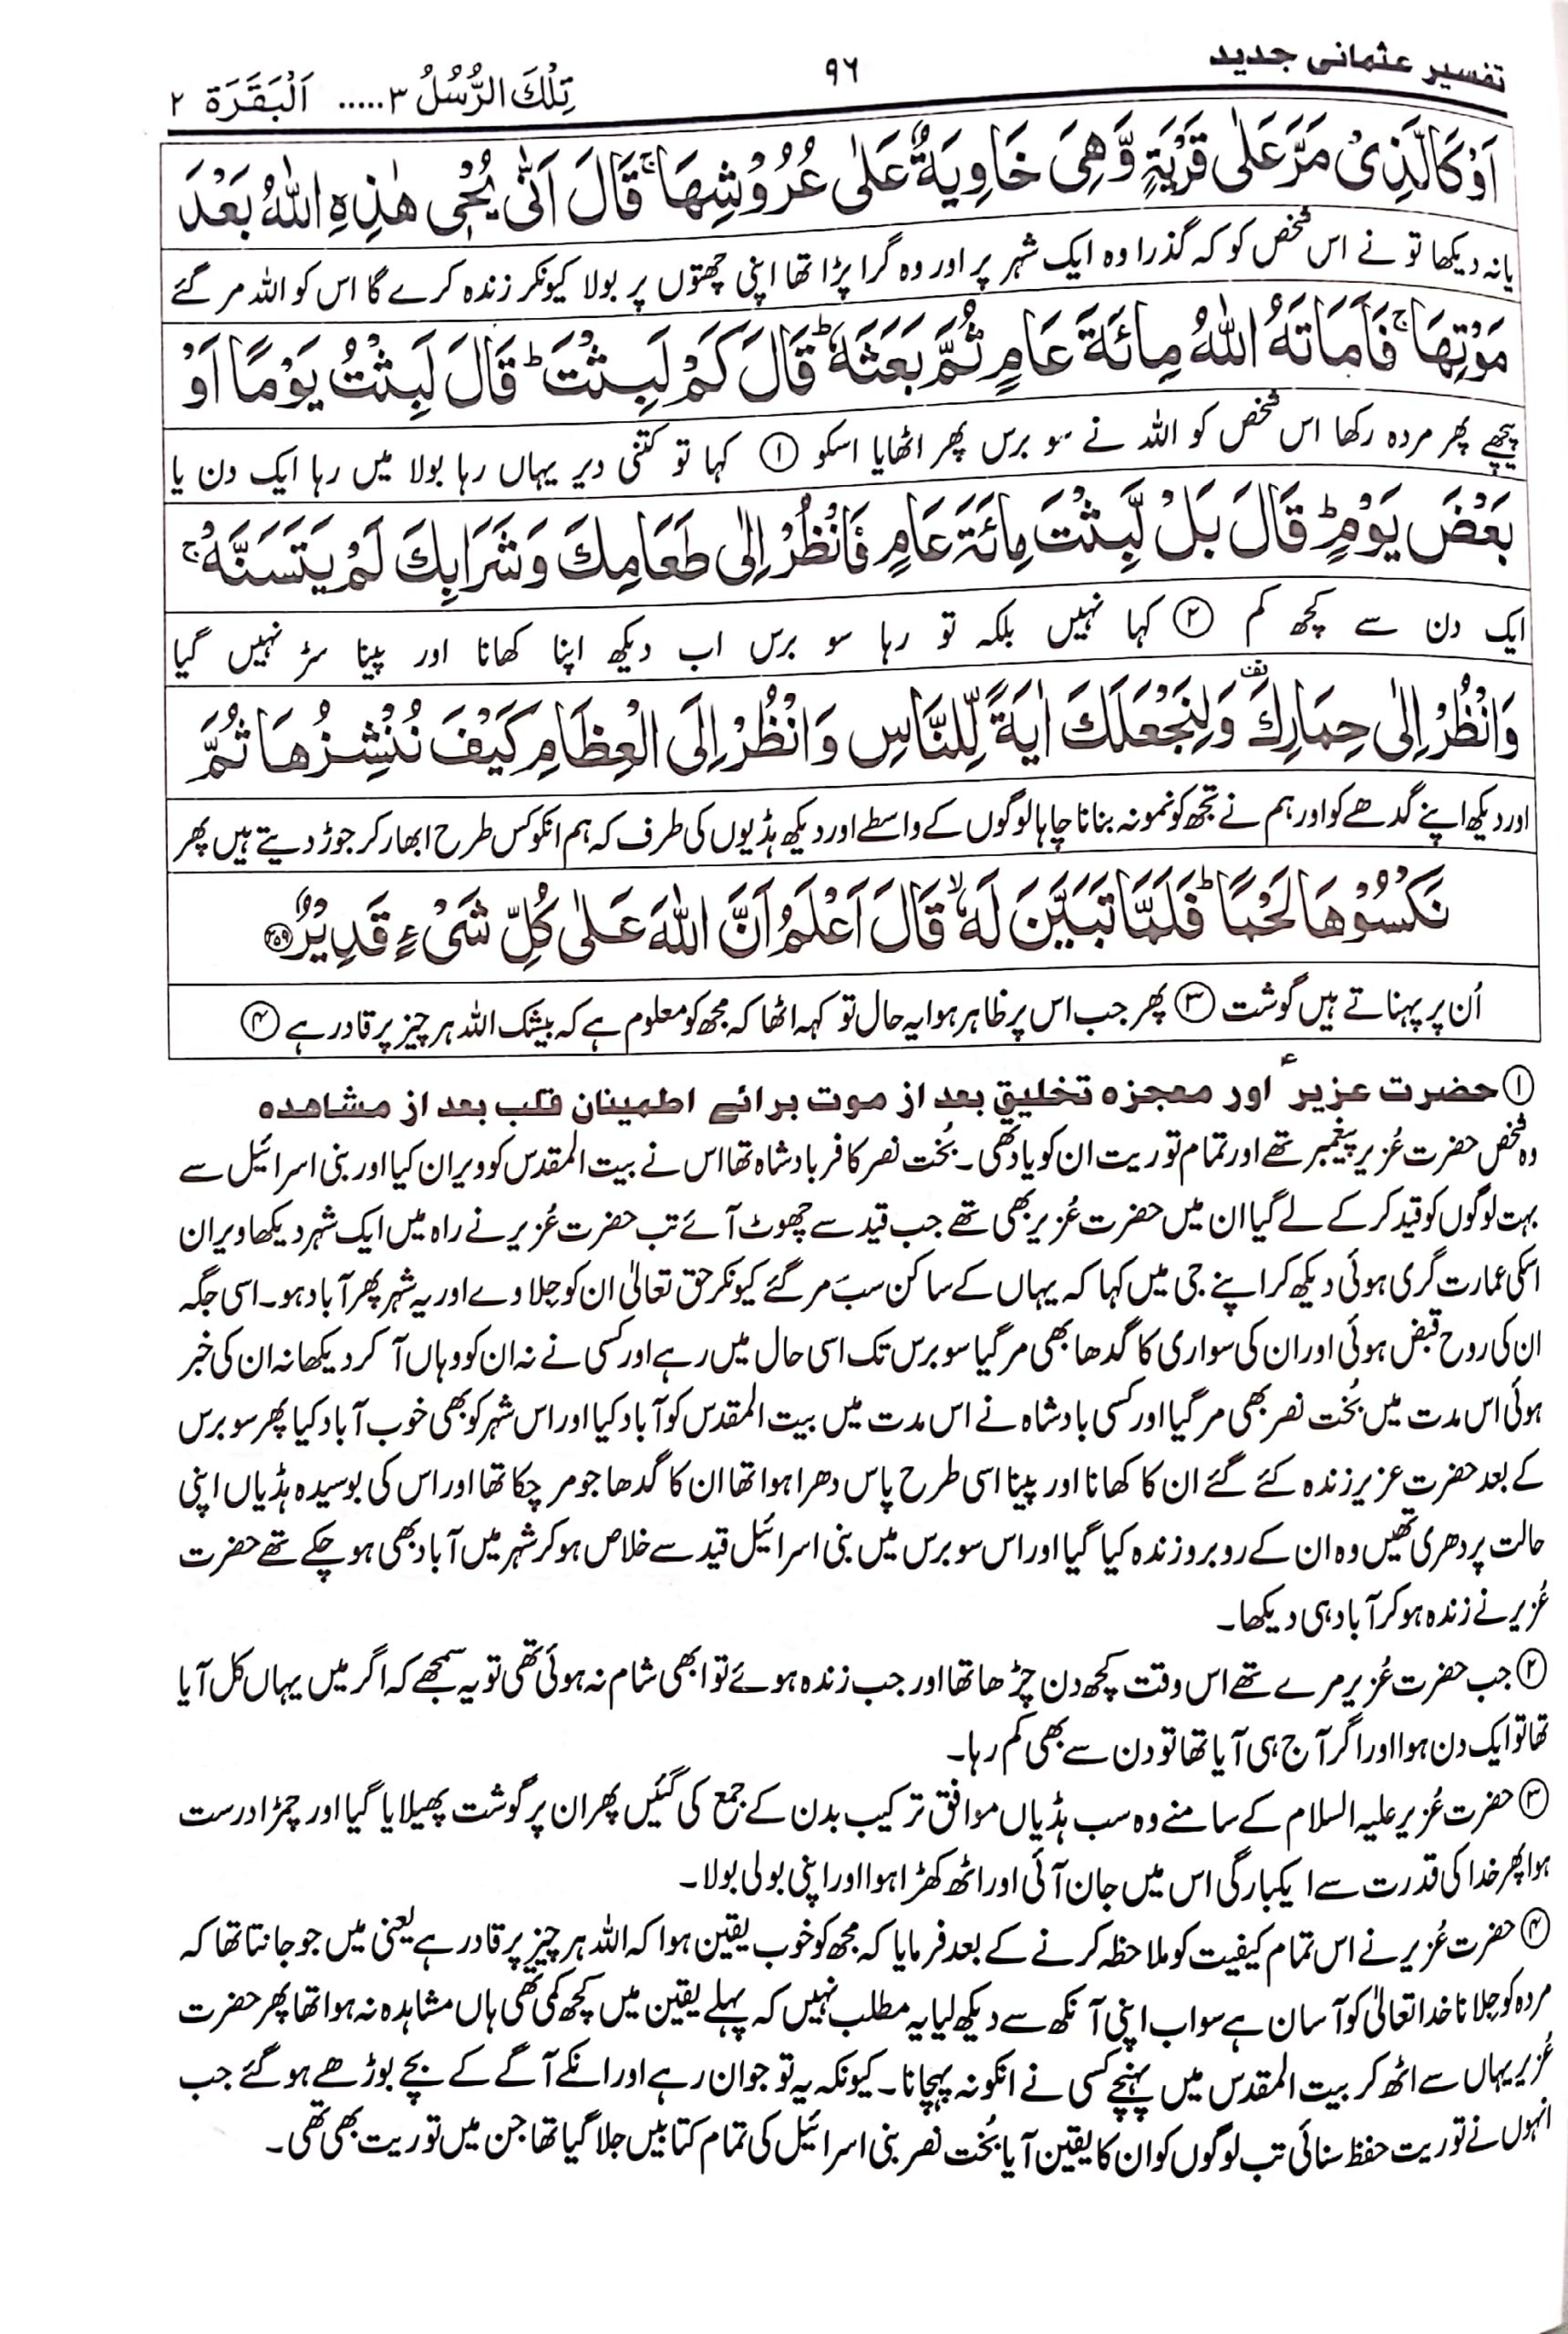 تفسیر عثمانی جدید
۹۶
تِلْكَ الرُّسُلُ ۳ ..... اَلْبَقَرَة ۲
اَوْ كَالَّذِیْ مَرَّ عَلٰی قَرْیَةٍ وَّهِیَ خَاوِیَةٌ عَلٰی عُرُوْشِهَا ۚ قَالَ اَنّٰی یُحْیٖ هٰذِهِ اللّٰهُ بَعْدَ
یا نہ دیکھا تو نے اس شخص کو کہ گذرا وہ ایک شہر پر اور وہ گرا پڑا تھا اپنی چھتوں پر بولا کیونکر زندہ کرے گا اس کو اللہ مر گئے
مَوْتِهَا ۚ فَاَمَاتَهُ اللّٰهُ مِائَةَ عَامٍ ثُمَّ بَعَثَهٗ ؕ قَالَ كَمْ لَبِثْتَ ؕ قَالَ لَبِثْتُ یَوْمًا اَوْ
پیچھے پھر مردہ رکھا اس شخص کو اللہ نے سو برس پھر اٹھایا اسکو ① کہا تو کتنی دیر یہاں رہا بولا میں رہا ایک دن یا
بَعْضَ یَوْمٍ ؕ قَالَ بَلْ لَّبِثْتَ مِائَةَ عَامٍ فَانْظُرْ اِلٰی طَعَامِكَ وَشَرَابِكَ لَمْ یَتَسَنَّهْ ۚ
ایک دن سے کچھ کم ② کہا نہیں بلکہ تو رہا سو برس اب دیکھ اپنا کھانا اور پینا سڑ نہیں گیا
وَانْظُرْ اِلٰی حِمَارِكَ وَلِنَجْعَلَكَ اٰیَةً لِّلنَّاسِ وَانْظُرْ اِلَی الْعِظَامِ كَیْفَ نُنْشِزُهَا ثُمَّ
اور دیکھ اپنے گدھے کو اور ہم نے تجھ کو نمونہ بنانا چاہا لوگوں کے واسطے اور دیکھ ہڈیوں کی طرف کہ ہم انکو کس طرح ابھار کر جوڑ دیتے ہیں پھر
نَكْسُوْهَا لَحْمًا ؕ فَلَمَّا تَبَیَّنَ لَهٗ ۙ قَالَ اَعْلَمُ اَنَّ اللّٰهَ عَلٰی كُلِّ شَیْءٍ قَدِیْرٌ ۲۵۹
اُن پر پہناتے ہیں گوشت ③ پھر جب اس پر ظاہر ہوا یہ حال تو کہہ اٹھا کہ مجھ کو معلوم ہے کہ بیشک اللہ ہر چیز پر قادر ہے ④
① حضرت عزیرؑ اور معجزہ تخلیق بعد از موت برائے اطمینان قلب بعد از مشاہدہ
وہ شخص حضرت عُزیر پیغمبر تھے اور تمام توریت ان کو یاد تھی۔ بُخت نصر کافر بادشاہ تھا اس نے بیت المقدس کو ویران کیا اور بنی اسرائیل سے
بہت لوگوں کو قید کر کے لے گیا ان میں حضرت عُزیر بھی تھے جب قید سے چھوٹ آئے تب حضرت عُزیر نے راہ میں ایک شہر دیکھا ویران
اسکی عمارت گری ہوئی دیکھ کر اپنے جی میں کہا کہ یہاں کے ساکن سب مر گئے کیونکر حق تعالیٰ ان کو جِلاوے اور یہ شہر پھر آباد ہو۔ اسی جگہ
ان کی روح قبض ہوئی اور ان کی سواری کا گدھا بھی مر گیا سو برس تک اسی حال میں رہے اور کسی نے نہ ان کو وہاں آ کر دیکھا نہ ان کی خبر
ہوئی اس مدت میں بُخت نصر بھی مر گیا اور کسی بادشاہ نے اس مدت میں بیت المقدس کو آباد کیا اور اس شہر کو بھی خوب آباد کیا پھر سو برس
کے بعد حضرت عزیر زندہ کئے گئے ان کا کھانا اور پینا اسی طرح پاس دھرا ہوا تھا ان کا گدھا جو مر چکا تھا اور اس کی بوسیدہ ہڈیاں اپنی
حالت پر دھری تھیں وہ ان کے روبرو زندہ کیا گیا اور اس سو برس میں بنی اسرائیل قید سے خلاص ہو کر شہر میں آباد بھی ہو چکے تھے حضرت
عُزیر نے زندہ ہو کر آباد ہی دیکھا۔
② جب حضرت عُزیر مرے تھے اس وقت کچھ دن چڑھا تھا اور جب زندہ ہوئے تو ابھی شام نہ ہوئی تھی تو یہ سمجھے کہ اگر میں یہاں کل آیا
تھا تو ایک دن ہوا اور اگر آج ہی آیا تھا تو دن سے بھی کم رہا۔
③ حضرت عُزیر علیہ السلام کے سامنے وہ سب ہڈیاں موافق ترکیب بدن کے جمع کی گئیں پھر ان پر گوشت پھیلایا گیا اور چمڑا درست
ہوا پھر خدا کی قدرت سے ایکبارگی اس میں جان آئی اور اٹھ کھڑا ہوا اور اپنی بولی بولا۔
④ حضرت عُزیر نے اس تمام کیفیت کو ملاحظہ کرنے کے بعد فرمایا کہ مجھ کو خوب یقین ہوا کہ اللہ ہر چیز پر قادر ہے یعنی میں جو جانتا تھا کہ
مردہ کو جِلانا خدا تعالیٰ کو آسان ہے سو اب اپنی آنکھ سے دیکھ لیا یہ مطلب نہیں کہ پہلے یقین میں کچھ کمی تھی ہاں مشاہدہ نہ ہوا تھا پھر حضرت
عُزیر یہاں سے اٹھ کر بیت المقدس میں پہنچے کسی نے انکو نہ پہچانا۔ کیونکہ یہ تو جوان رہے اور انکے آگے کے بچے بوڑھے ہو گئے جب
انہوں نے توریت حفظ سنائی تب لوگوں کو ان کا یقین آیا بُخت نصر بنی اسرائیل کی تمام کتابیں جلا گیا تھا جن میں توریت بھی تھی۔